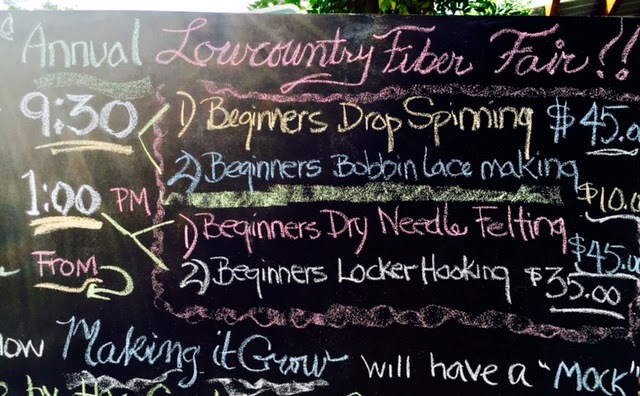 Annual Lowcountry Fiber Fair!!
9:30 1) Beginners Drop Spinning $45.
2) Beginners Bobbin lace making $10.0
1:00 PM 1) Beginners Dry Needle Felting $45.00
From 2) Beginners Locker Hooking $35.00
Making it Grow will have a "Mock"
by the